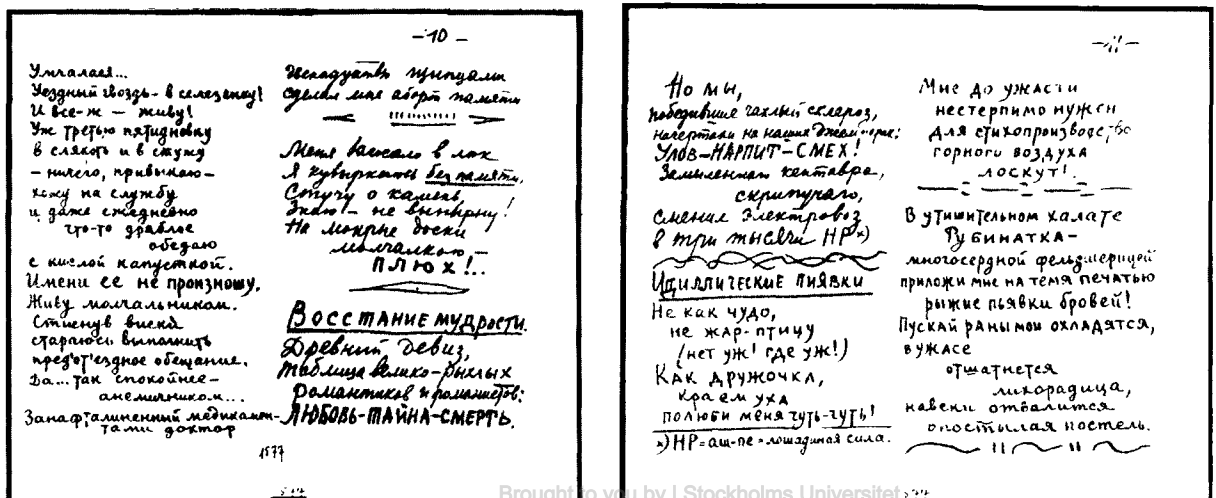 – 10 –
Умчалась...
Уездный гвоздь – в селезенку!
И все-ж – живу!
Уж третью пятидневку
в слякоть и в стужу
– ничего, привыкаю –
хожу на службу
и даже ежедневно
что-то дряблое
обедаю
с кислой капусткой.
Имени ее не произношу.
Живу молчальником.
Стиснув виски
стараюсь выполнить
предот'ездное обещание.
Да... так спокойнее –
анемичником...
Занафталиненный медикамен-
тами доктор
щипцами
сделал мне аборт памяти
Меня в люк
Я кувыркаюсь без памяти,
Стучу о камень,
Знаю! – не вынырну!
На мокрые доски
молчалкою –
ПЛЮХ!..
ВОССТАНИЕ МУДРОСТИ.
Древний девиз,
таблица велико-рыхлых
романтиков и романистов:
ЛЮБОВЬ–ТАЙНА–СМЕРТЬ.
1577
– 11 –
Но мы,
победившие чахлый склероз,
начертали на наших :
УЛОВ–НАРПИТ–СМЕХ!
кентавра,
скрипучаго,
сменил Электровоз
в три тысячи HP *)
ИДИЛЛИЧЕСКИЕ ПИЯВКИ
Не как чудо,
не жар-птицу
(нет уж! где уж!)
Как дружочка,
краем уха
полюби меня чуть-чуть!
*) HP = аш-пе = лошадиная сила.
Мне до ужасти
нестерпимо нужен
для стихопроизводство
горного воздуха
лоскут!
В утишительном халате
Губинатка –
многосердной фельдшерицей
приложи мне на темя печатью
рыжие пьявки бровей!
Пускай раны мои охладятся,
в ужасе
отшатнется
лихорадица,
навеки отвалится
опостылая постель.
Brought to you by | Stockholms Universitet